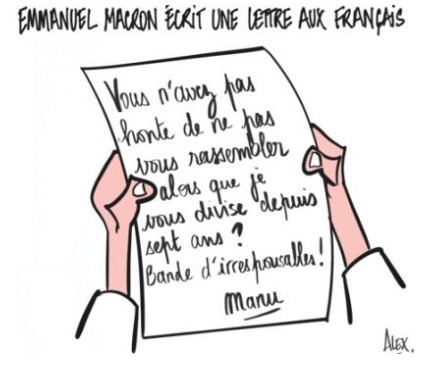 EMMANUEL MACRON ÉCRIT UNE LETTRE AUX FRANÇAIS
Vous n'avez pas
honte de ne pas
vous rassembler
alors que je
vous divise depuis
sept ans ?
Bande d'irresponsables !
Manu
ALEX.